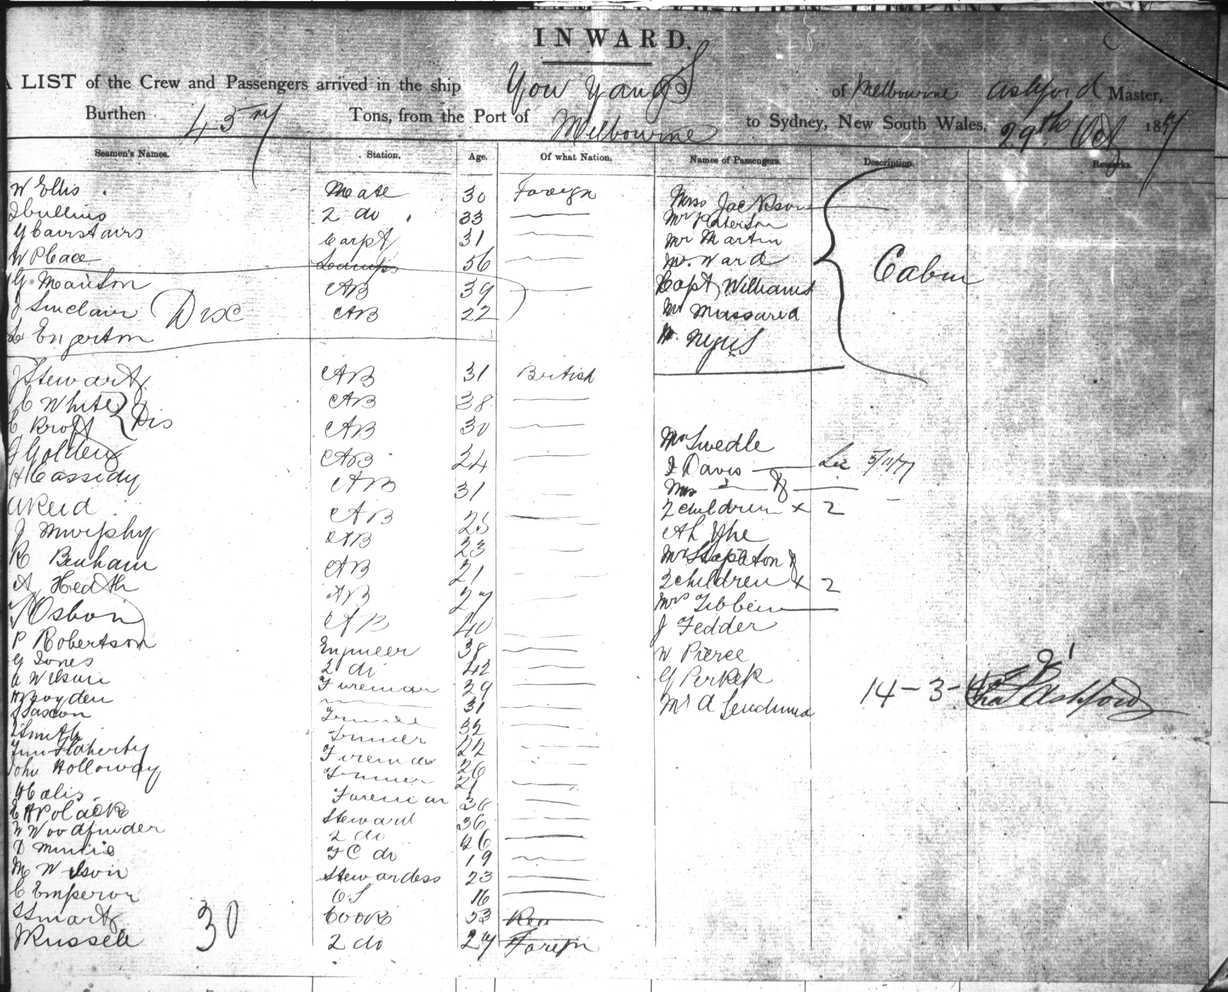 INWARD.
A LIST of the Crew and Passengers arrived in the ship You Yangs of Melbourne Ashford Master,
Burthen 457 Tons, from the Port of Melbourne to Sydney, New South Wales, 29th Oct 1877
Seamen's Names. Station. Age. Of what Nation. Names of Passengers. Description. Remarks.
W Ellis Mate 30 Foreign
2 do 33
G Cairstairs Carpt 31
W Place Lamps 56
G Manson AB 39
J Sinclair AB 22
L Engerton
Dix
J Stewart AB 31 British
C White AB 38
C Kroft AB 30
Dis
J Golden AB 24
H Cassidy AB 31
A Reid AB 25
J Murphy AB 23
R Benham AB 21
A Heath AB 27
Osbon AB 40
P Robertson Engineer 38
G Jones 2 do 42
C Wilson Fireman 29
Boyden 31
Gascon 32
Smith 22
Flaherty Fireman 26
John Holloway
Halis Foreman 36
Polack Steward 36
W Woodfinder 2 do 26
D F C do 19
M Wilson Stewardess 23
C Emperor OS 16
S Smart Cook 53
J Russell 2 do 27 Foreign
30
Miss Jackson
Mr Paterson
Mr Martin
Mr. Ward
Capt Williams
Mr Massared
Mr. Negus
Cabin
Mr Swedle
J Davis 5/11/77
Mrs
2 children x 2
Ah Yhe
Mrs Stapaton &
2 children x 2
Mrs Tibbein
J Fedder
W Pierce
G Perkek
Mr A
14-3-
Ashford